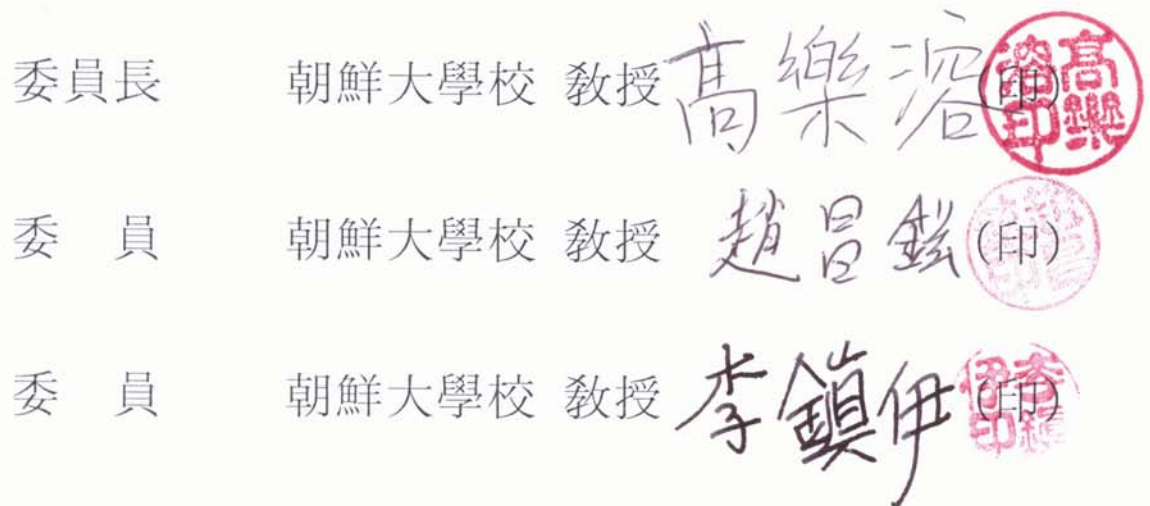 委員長 朝鮮大學校 敎授 高樂溶 (印)
委 員 朝鮮大學校 敎授 趙昌鉉 (印)
委 員 朝鮮大學校 敎授 李鎭伊 (印)